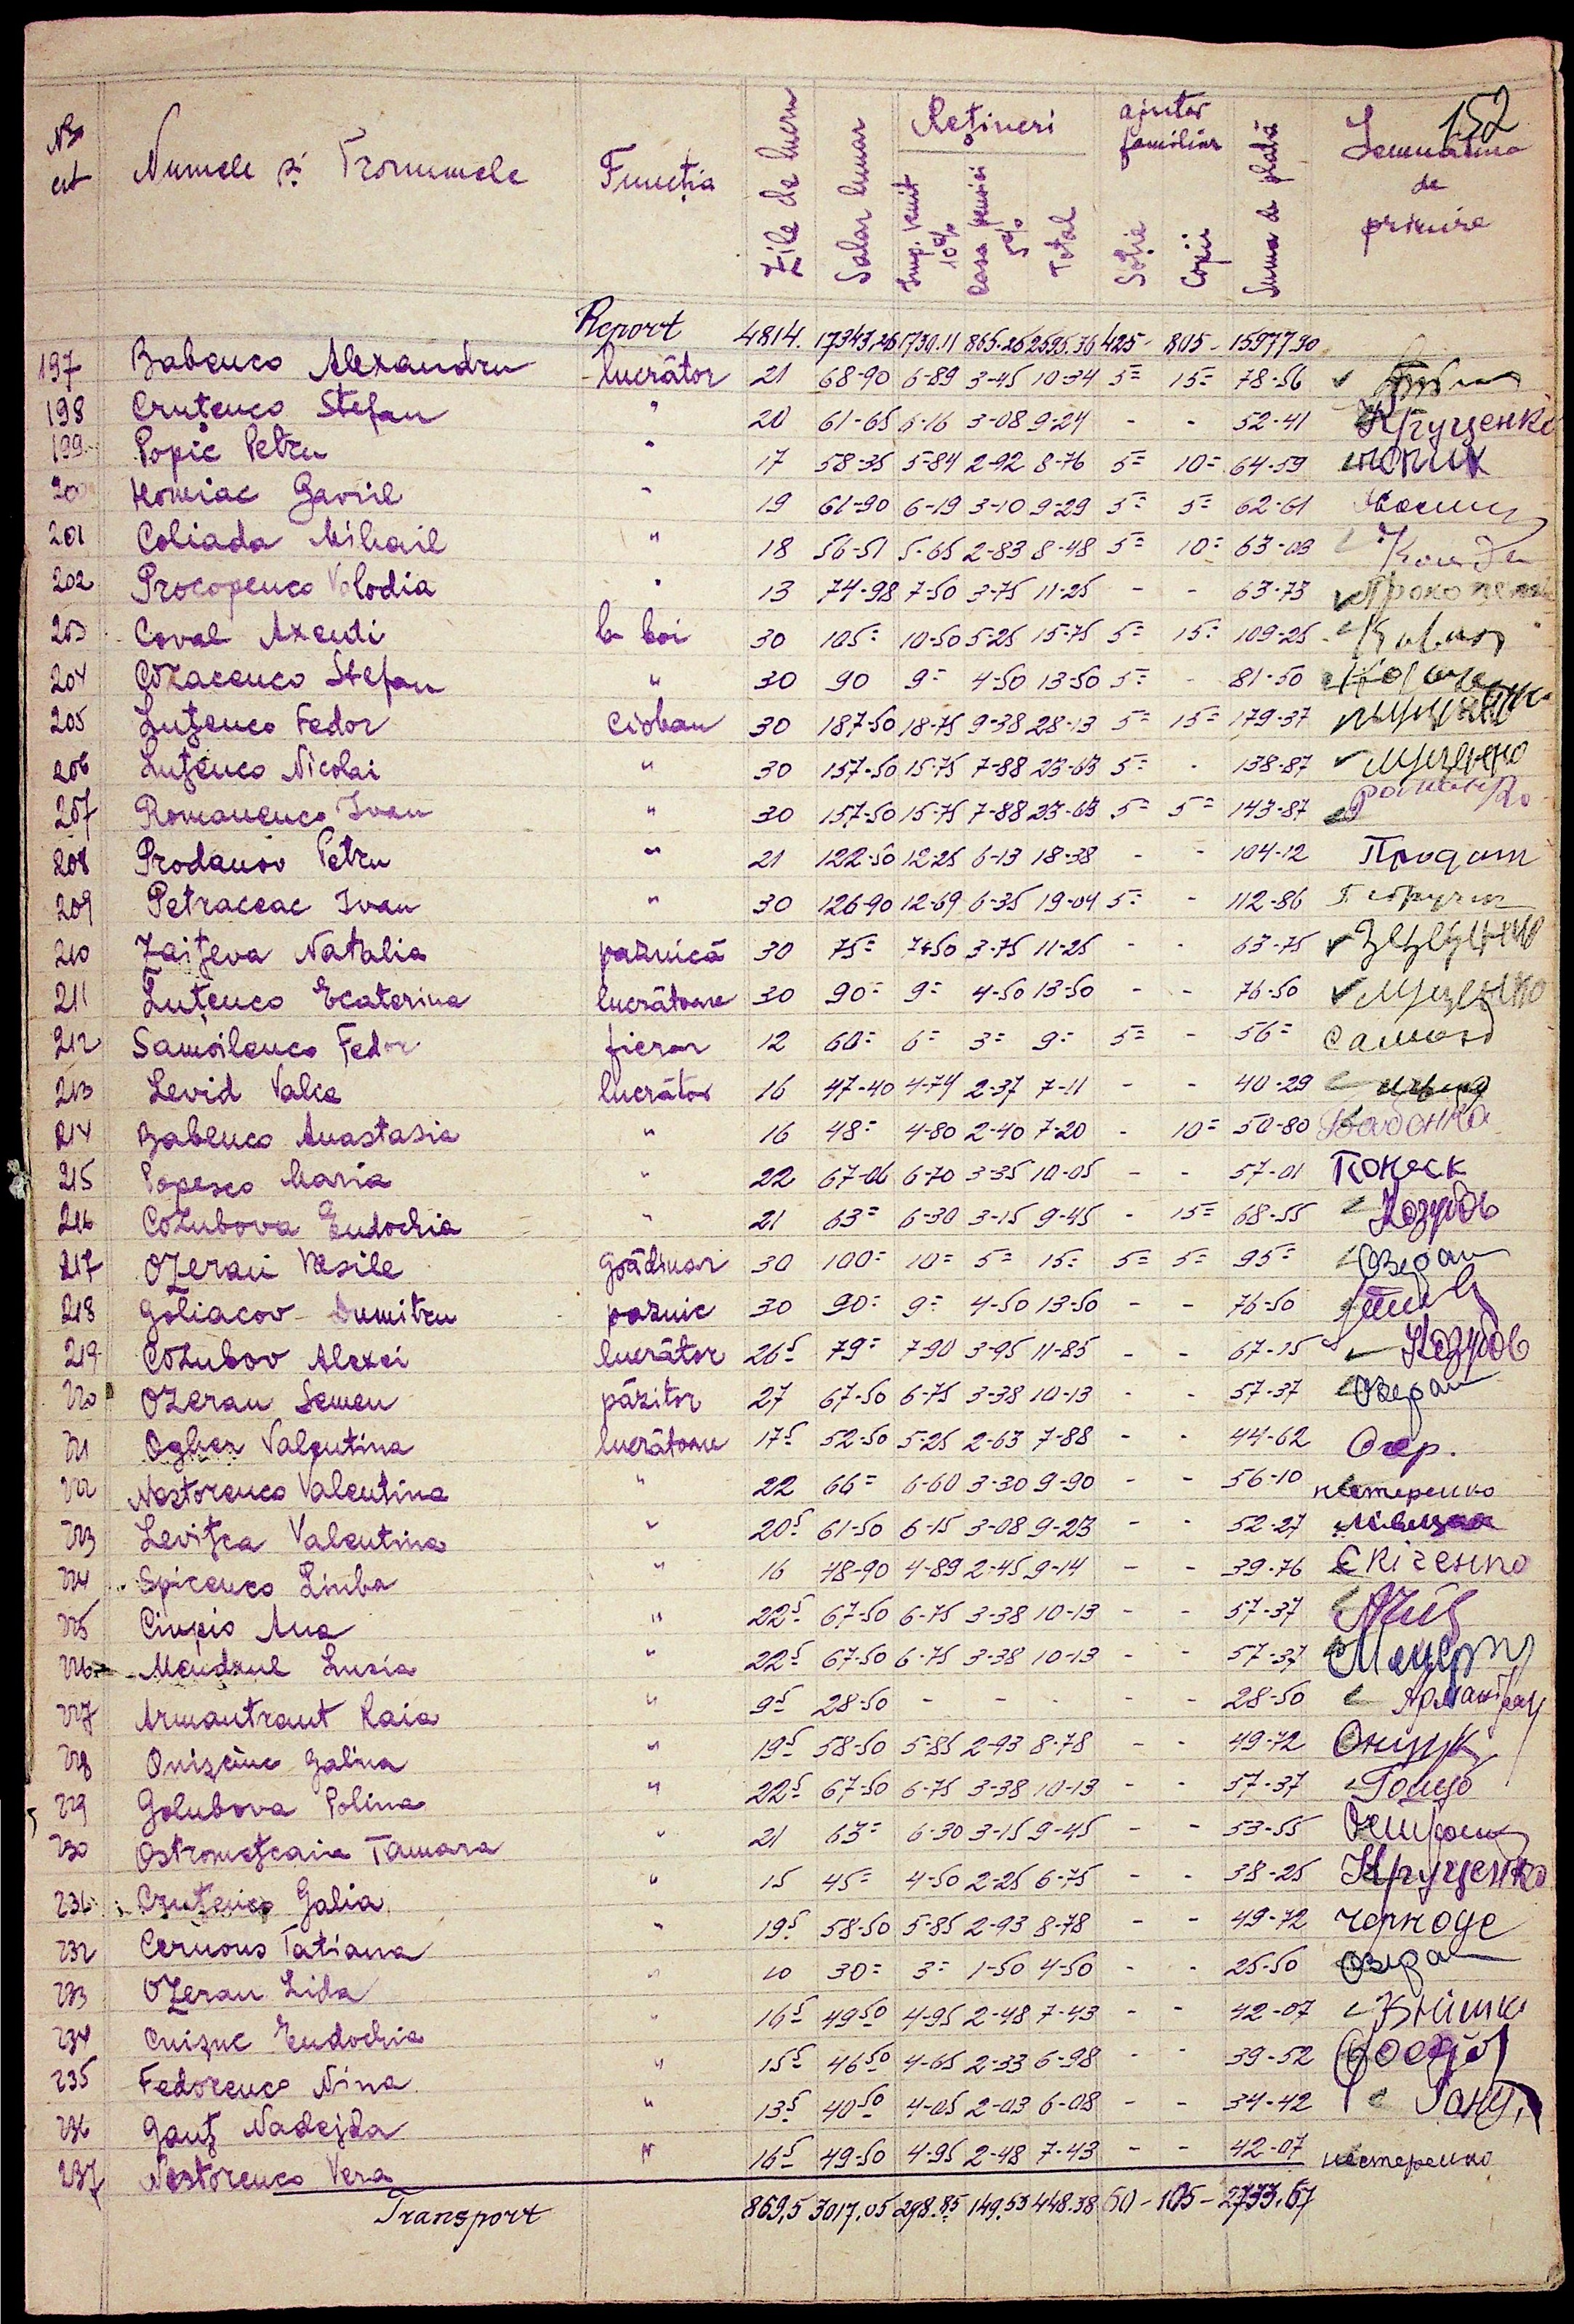 152
No crt Numele și Pronumele Funcția Zile de lucru Salar lunar Rețineri Imp. venit 10% Casa pensiei 5% Total ajutor familiar Soție Copii Suma de plată Semnatura de primire
Report 4814. 17343,26 1730.11 865.26 2595.36 425- 805- 15977 90
197 Babenco Alexandru lucrător 21 68-90 6-89 3-45 10-34 5= 15= 78-56
198 Cruțenco Stefan " 20 61-65 6-16 3-08 9-24 - - 52-41 Круценко
199 Popic Petru " 17 58-35 5-84 2-92 8-76 5= 10= 64-59 попик
200 Homiac Gavriil " 19 61-90 6-19 3-10 9-29 5= 5= 62-61
201 Coliada Mihail " 18 56-51 5-65 2-83 8-48 5= 10= 63-03
202 Procopenco Volodia " 13 74-98 7-50 3-75 11-25 - - 63-73
203 Coval Axenti la boi 30 105= 10-50 5-25 15-75 5= 15= 109-25
204 Cozacenco Stefan " 30 90 9= 4-50 13-50 5= - 81-50
205 Luțenco Fedor Cioban 30 187-50 18-75 9-38 28-13 5= 15= 179-37
206 Luțenco Nicolai " 30 157-50 15-75 7-88 23-63 5= - 138-87 луценко
207 Romanenco Ivan " 30 157-50 15-75 7-88 23-63 5= 5= 143-87 Романенко
208 Prodanov Petru " 21 122-50 12-25 6-13 18-38 - - 104-12 Продан
209 Petraceac Ivan " 30 126-90 12-69 6-35 19-04 5= - 112-86
210 Zaițeva Natalia paznică 30 75= 7-50 3-75 11-25 - - 63-75
211 Luțenco Ecaterina lucrătoare 30 90= 9= 4-50 13-50 - - 76-50 луценко
212 Samoilenco Fedor fierar 12 60= 6= 3= 9= 5= - 56= Самой
213 Levid Valea lucrător 16 47-40 4-74 2-37 7-11 - - 40-29
214 Babenco Anastasia " 16 48= 4-80 2-40 7-20 - 10= 50-80 Бабенко
215 Popesco Maria " 22 67-06 6-70 3-35 10-05 - - 57-01 Попеск
216 Cozubova Eudochia " 21 63= 6-30 3-15 9-45 - 15= 68-55 Козубов
217 Ozeran Vasile grădinar 30 100= 10= 5= 15= 5= 5= 95= Озеран
218 Goliacov Dumitru paznic 30 90= 9= 4-50 13-50 - - 76-50
219 Cozubov Alexei lucrător 26⁵ 79= 7-90 3-95 11-85 - - 67-15 Козубов
220 Ozeran Semen păzitor 27 67-50 6-75 3-38 10-13 - - 57-37 Озеран
221 Ogher Valentina lucrătoare 17⁵ 52-50 5-25 2-63 7-88 - - 44-62 Огер.
222 Nestorenco Valentina " 22 66= 6-60 3-30 9-90 - - 56-10 нестеренко
223 Levițca Valentina " 20⁵ 61-50 6-15 3-08 9-23 - - 52-27
224 Spicenco Liuba " 16 48-90 4-89 2-45 9-14 - - 39-76
225 Ciupis Ana " 22⁵ 67-50 6-75 3-38 10-13 - - 57-37
226 Mendrul Lusia " 22⁵ 67-50 6-75 3-38 10-13 - - 57-37
227 Armantraut Raia " 9⁵ 28-50 - - - - - 28-50
228 Onișciuc Galina " 19⁵ 58-50 5-85 2-93 8-78 - - 49-72
229 Golubova Polina " 22⁵ 67-50 6-75 3-38 10-13 - - 57-37
230 Ostromețcaia Tamara " 21 63= 6-30 3-15 9-45 - - 53-55
231 Cruțenco Galia " 15 45= 4-50 2-25 6-75 - - 38-25 Круценко
232 Cernous Tatiana " 19⁵ 58-50 5-85 2-93 8-78 - - 49-72
233 Ozeran Lida " 10 30= 3= 1-50 4-50 - - 25-50 Озеран
234 Onișuc Eudochia " 16⁵ 49⁵⁰ 4-95 2-48 7-43 - - 42-07
235 Fedorenco Nina " 15⁵ 46⁵⁰ 4-65 2-33 6-98 - - 39-52
236 Ganț Nadejda " 13⁵ 40⁵⁰ 4-05 2-03 6-08 - - 34-42
237 Nestorenco Vera " 16⁵ 49-50 4-95 2-48 7-43 - - 42-07 нестеренко
Transport 869,5 3017,05 298.85 149.53 448.38 60- 105- 2733,67